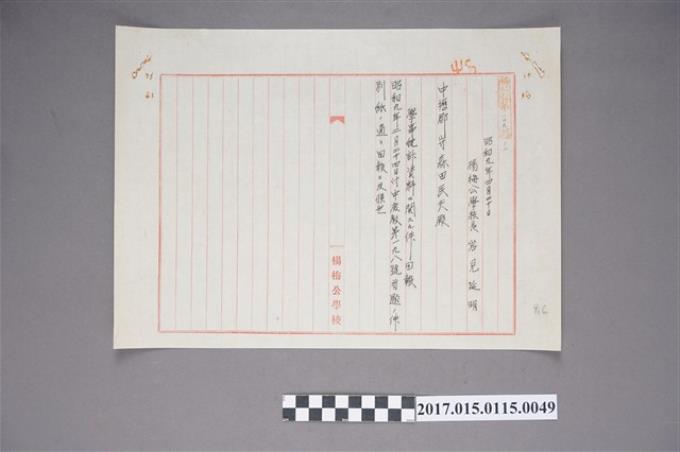 昭和九年四月二十日
楊梅公學校長 見延明
中壢郡守 森田民夫殿
學事統計資料ニ關スル件回報
昭和九年二月二十四日付中庶教第一九八號首題ノ件
別紙ノ通リ回報ニ及候也
楊梅公學校
2017.015.0115.0049